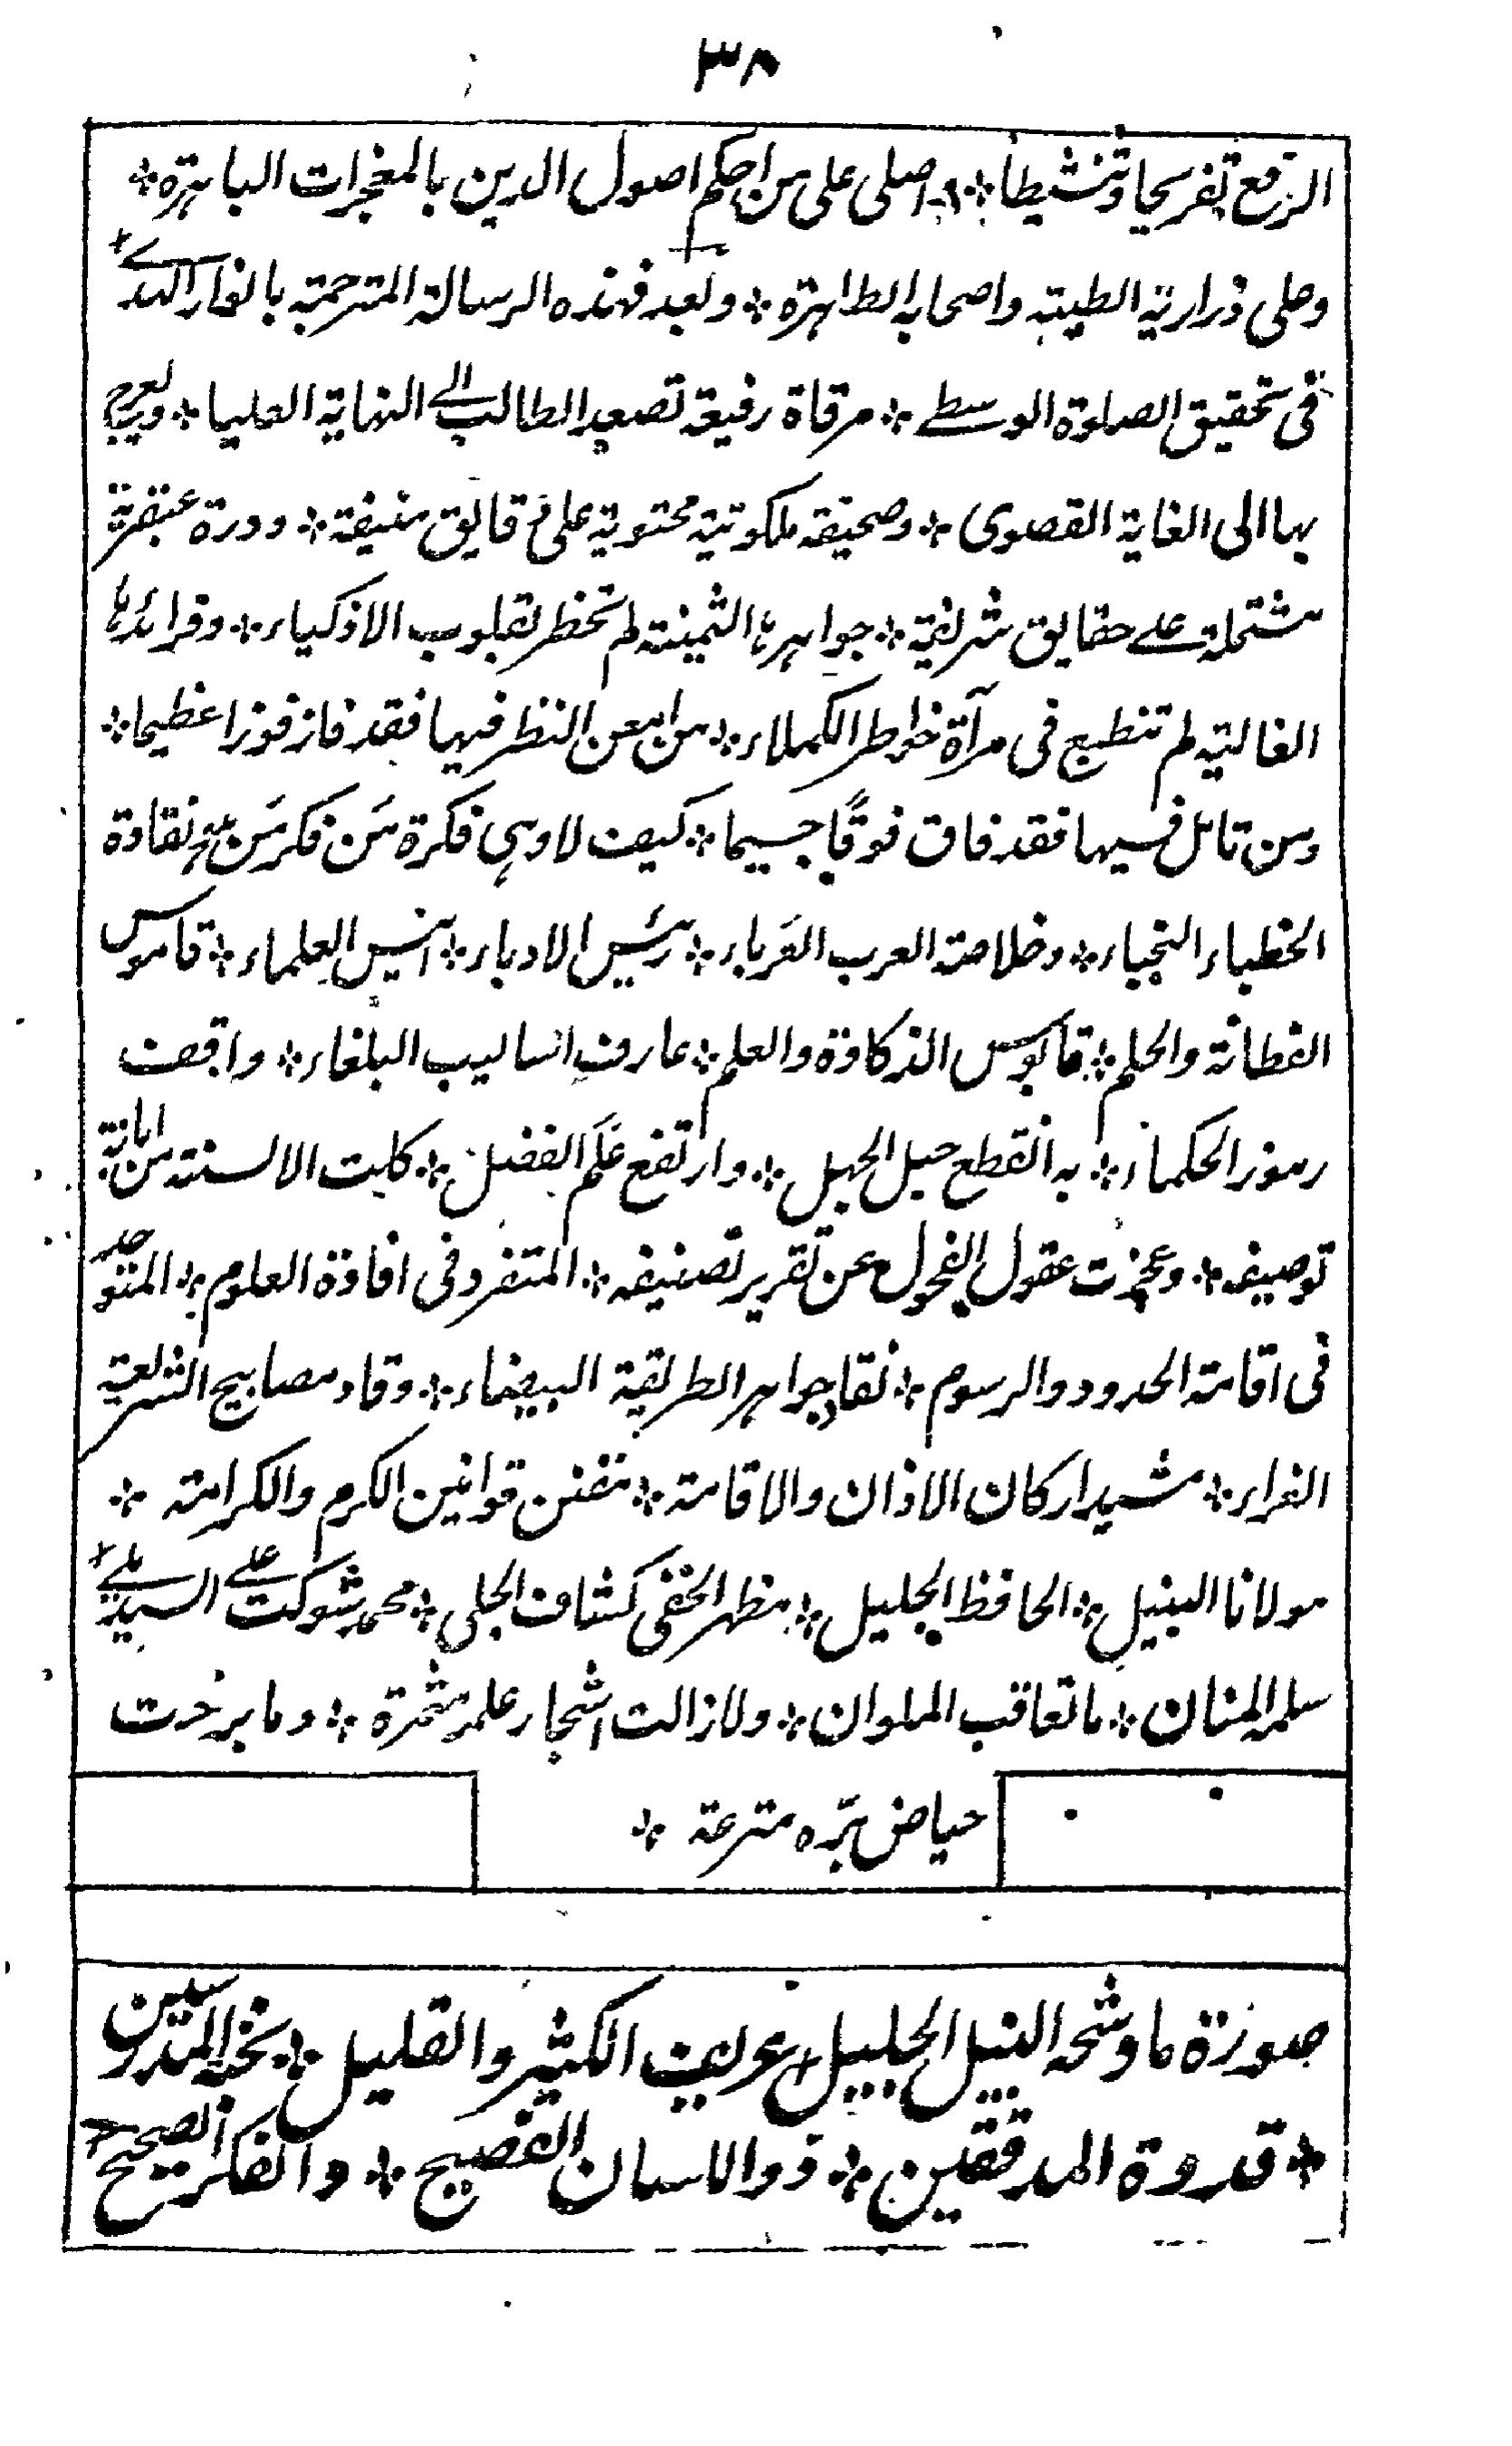 ٣٨
الرفع تفريحا وتنشيطا * واصلى على من احكم اصول الدين بالمعجزات الباهرة *
وعلى ذراريه الطيبة واصحابه الطاهرة * وبعد فهذه الرسالة المترجمة
فى تحقيق الصلوة الوسطے * مرقاة رفيعة تصعد الطالب الے النهاية العليا *
بها الى الغاية القصوى * وصحيفة ملكوتية محتوية على دقايق منيفة * ودرة عبقرية
مشتملة علے حقايق شريفة * جواهرها الثمينة لم تخطر بقلوب الاذكياء * وفرائدها
الغالية لم تنطبع فى مرآة خواطر الكملاء * من امعن النظر فيها فقد فاز فوزا عظيما *
ومن تامل فيها فقد فاق فوقًا جسيما * كيف لا وهى فكرة مَن فكر مَن هو نقادة
الخطباء النجباء * وخلاصة العرب العَرباء * رئيس الادباء * انيس العلماء * قاموس
الفطانة والحلم * قابوس الذكاوة والعلم * عارف اساليب البلغاء * واقف
رموز الحكماء * به انقطع حبل الجهل * وارتفع عَلَم الفضل * كلت الالسنة من ابانة
توصيفه * وعجزت عقول الفحول عن تقرير تصنيفه * المتفرد فى افادة العلوم * المتوحد
فى اقامة الحدود والرسوم * نقاد جواهر الطريقة البيضاء * وقاد مصابيح الشريعة
الغراء * مشيد اركان الاذان والاقامة * مقنن قوانين الكرم والكرامة *
مولانا النبيل * الحافظ الجليل * مظهر الخفى كشاف الجلى * محمد شوكت علے السنديلے
سلمه المنان * ما تعاقب الملوان * ولا زالت اشجار علمه مثمرة * وما برحت
حياض برّه مترعة *
صورة ما وشحه النبيل الجليل * عريف الكثير والقليل * نخبة المتدرسين
* قدوة المدققين * ذو اللسان الفصيح * والفكر الصحيح